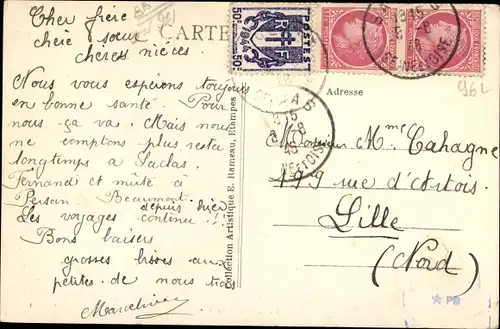 Cher frère
chère sœur
chères nièces.
Nous vous espérons toujours
en bonne santé. Pour
nous ça va. Mais nous
ne comptons plus rester
longtemps à Saclas.
Fernand et muté à
Persan Beaumont
depuis hier
Les voyages continu !!
Bons baisers
grosses bises aux
petites de nous trois
CARTE
50c
POSTES
RF
1944
50c
Collection Artistique E. Rameau, Etampes
15
8
SEINE-ET-OISE
Adresse
962
Monsieur Mme Cahagne
199 rue d'Artois
Lille
(Nord)
PB